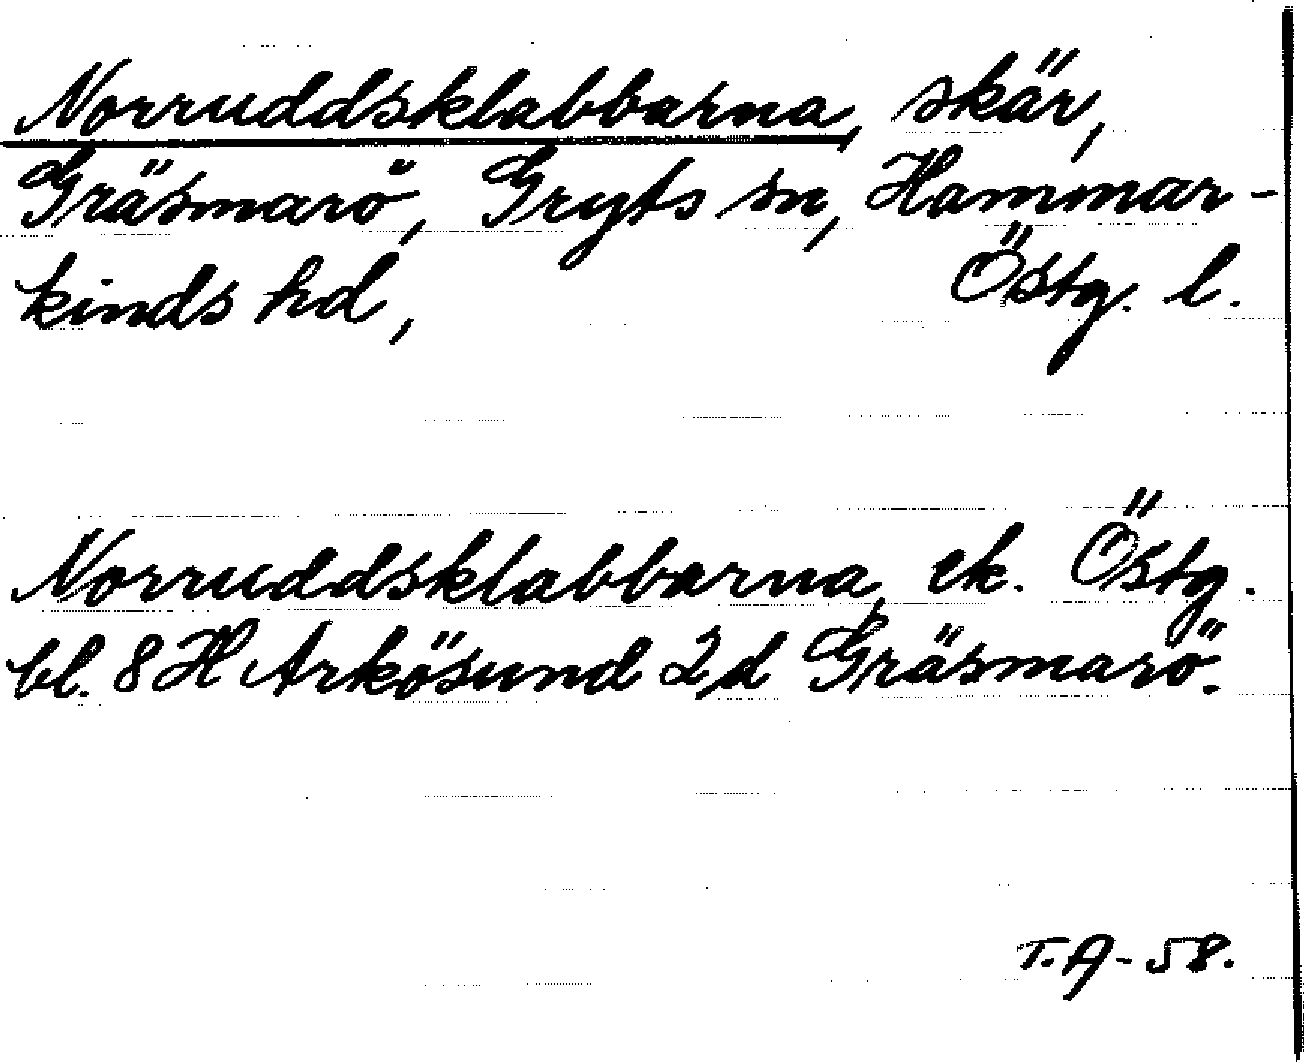 Norruddsklabbarna, skär,
Gräsmarö, Gryts sn, Hammar-
kinds hd, Östg. l.
Norruddsklabbarna, ek. Östg.
bl. 8 H Arkösund 2 d Gräsmarö.
T.A-58.